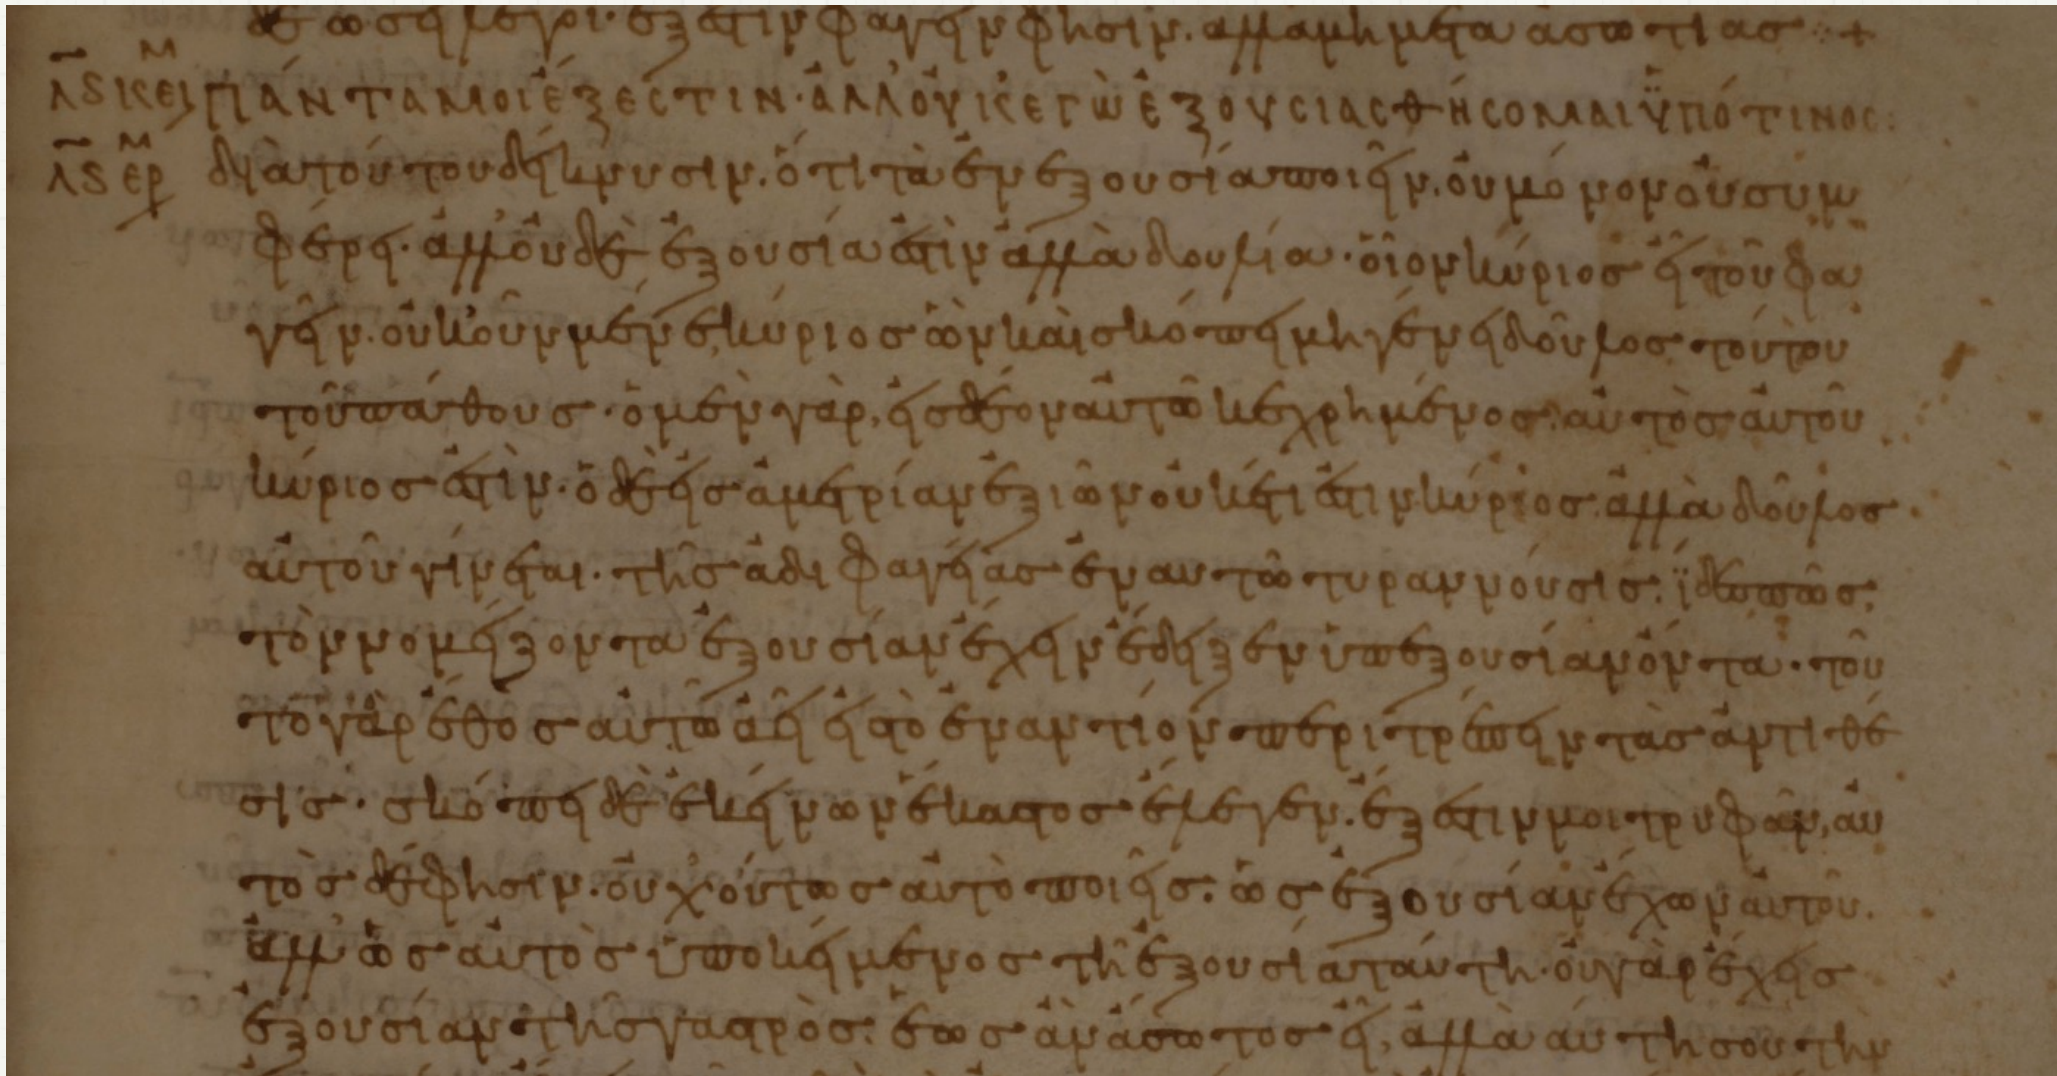 δὲ ὡσεὶ λέγοι· ἔξεστιν φαγεῖν φησίν. ἀλλα μὴ μετα ἀσωτίας :+
ΠΆΝΤΑ ΜΟΙ ἜΞΕΣΤΙΝ· ἈΛΛ' ΟΥ̓Κ ἘΓῺ ἘΞΟΥΣΙΑΣΘΉΣΟΜΑΙ ὙΠΌ ΤΙΝΟΣ:
διὰ τούτου δείκνυσιν. ὅτι τὰ ἐν ἐξουσία ποιεῖν. οὐ μόνον οὐ συμ
φέρει· ἀλλ' οὐδὲ ἐξουσία ἐστὶν ἀλλὰ δουλία· οἷον κύριος εἶ τοῦ φα
γεῖν. οὐκοῦν μένε κύριος ὢν καὶ σκόπει μὴ γένη δοῦλος τούτου
τοῦ πάθους· ὁ μὲν γὰρ, εἰς δέον αὐτῶ κεχρημένος. αὐτὸς αὐτοῦ
κύριος ἐστὶν· ὁ δὲ εἰς ἀμετρίαν ἐξιὼν οὐκέτι ἐστιν κύριος. ἀλλὰ δοῦλος
αὐτοῦ γίνεται· τῆς ἀδιφαγείας ἐν αυτῶ τυραννούσις. ἴδε πῶς,
τὸν νομείζοντα ἐξουσίαν ἔχειν ἔδειξεν ὑπεξουσίαν ὄντα· τοῦ
το γὰρ ἔθος αὐτῶ ἀεὶ εἰς τὸ ἐναντίον περιτρέπειν τὰς ἀντιθέ
σις· σκόπει δὲ ἐκείνων ἕκαστος ἔλεγεν. ἔξεστιν μοι τρυφᾶν, αὐ
τὸς δέ φησιν. οὐχ' οὕτως αὐτὸ ποιεῖς. ὡς ἐξουσίαν ἔχων αὐτοῦ.
ἀλλ' ὡς αὐτὸς ὑποκείμενος τῆ ἐξουσία ταύτη· οὐ γὰρ ἔχεις
ἐξουσίαν τῆς γαστρὸς. ἕως ἂν ἄσωτος εἶ, ἀλλὰ αὐτη σου τὴν